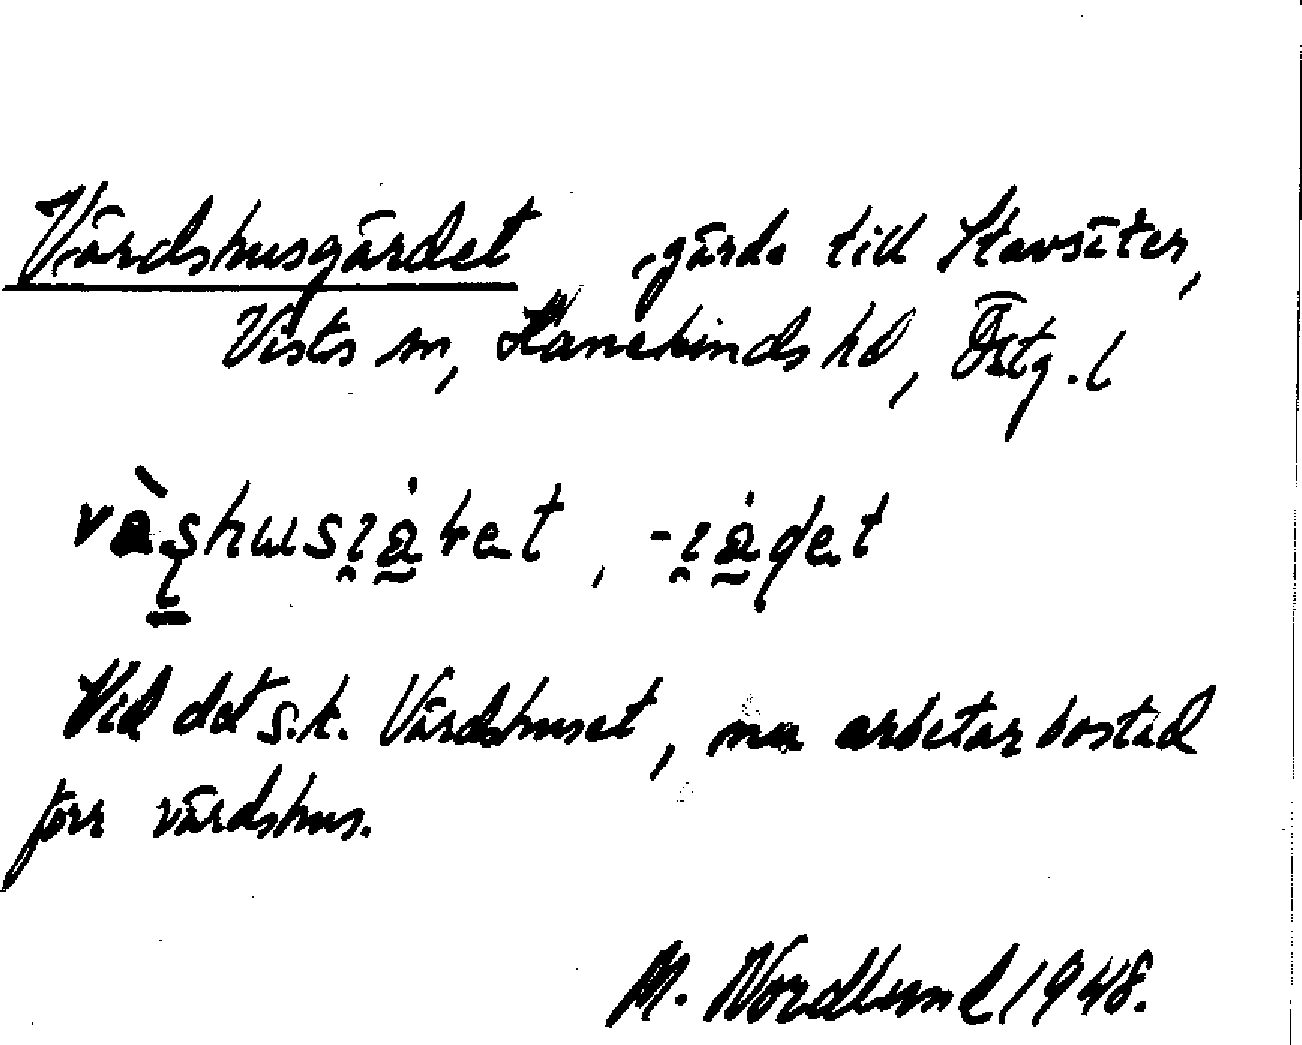 Värdshusgärdet, gärde till Stavsäter,
Vists sn, Hanekinds hd, Östg. l
Vid det s.k. Värdshuset, nu arbetarbostad
förr värdshus.
M. Nordlund 1948.